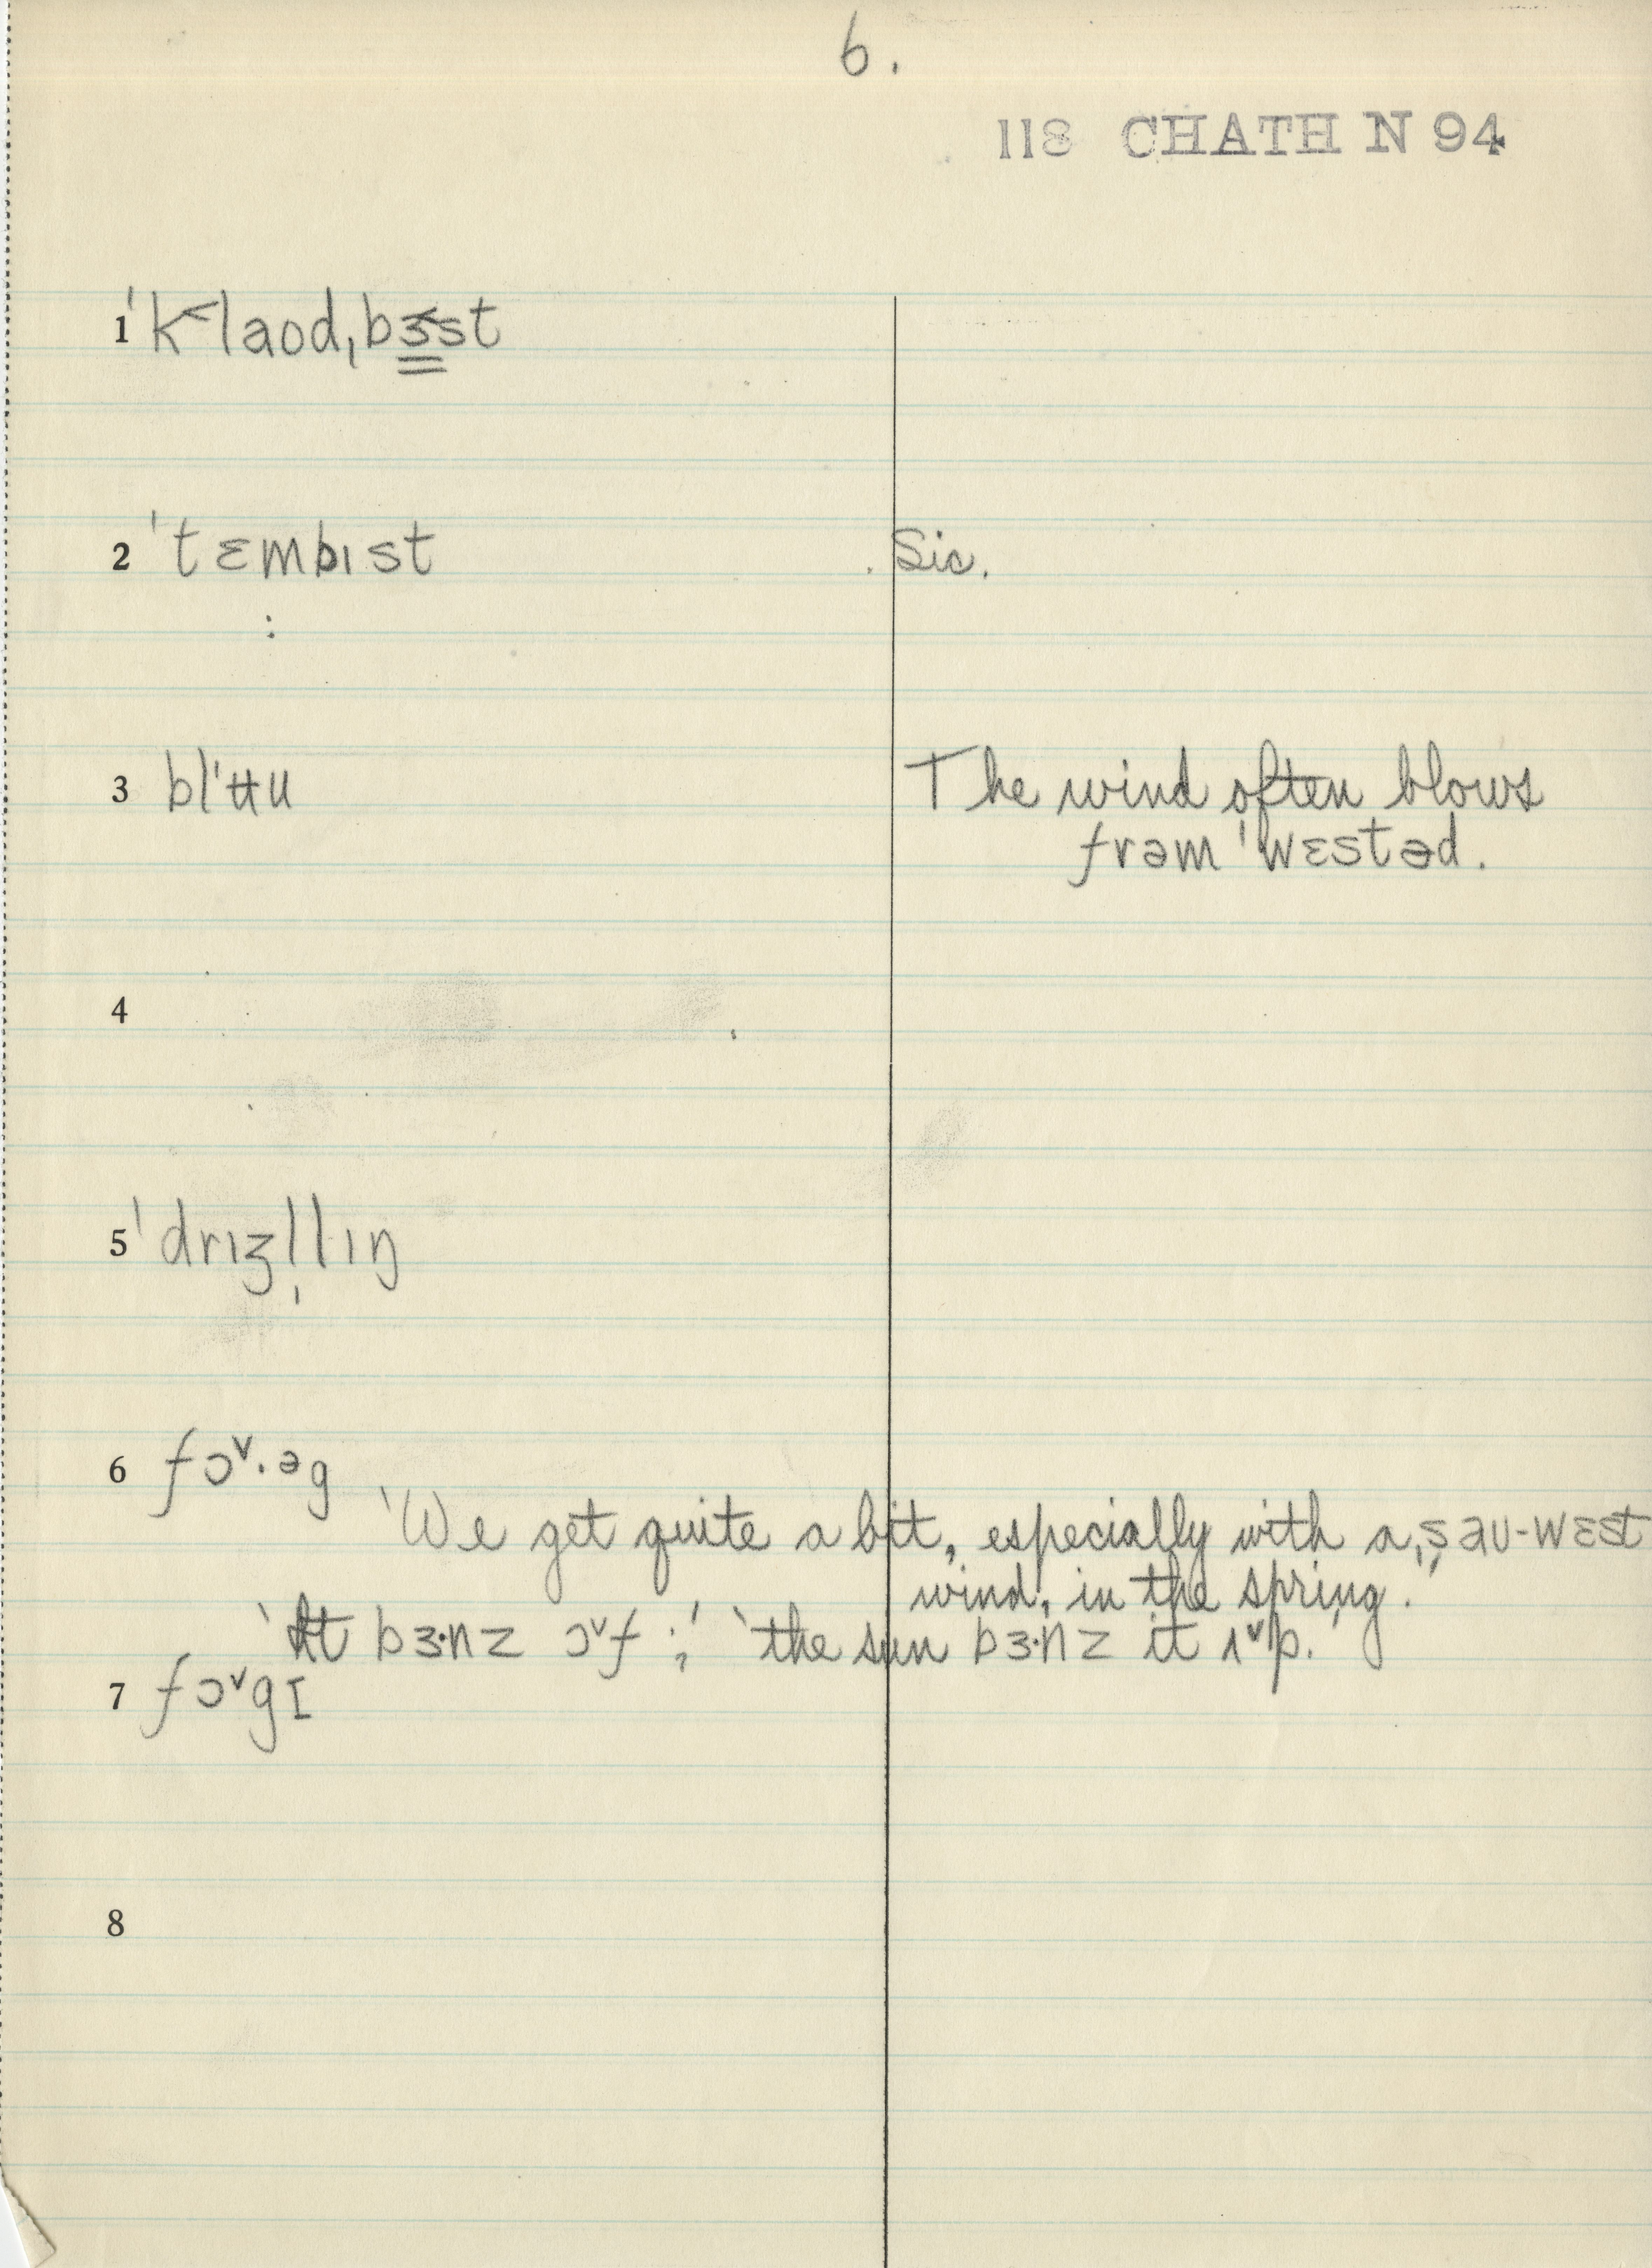 6.
118 CHATH N 94
1 ˈk˂laod,bɜ˂st
2 ˈtɛmbɪst Sic.
3 blˈʉu The wind often blows
frəm ˈwɛstəd.
4
5 ˈdrɪʒl̩lɪŋ
6 fɔ˅·əg
'We get quite a bit, especially with a ˌsaʊ-wɛst
wind, in the spring.'
'It bɜ·nz ɔ˅f;' 'the sun bɜ·nz it ʌ˅p.'
7 fɔ˅gɪ
8